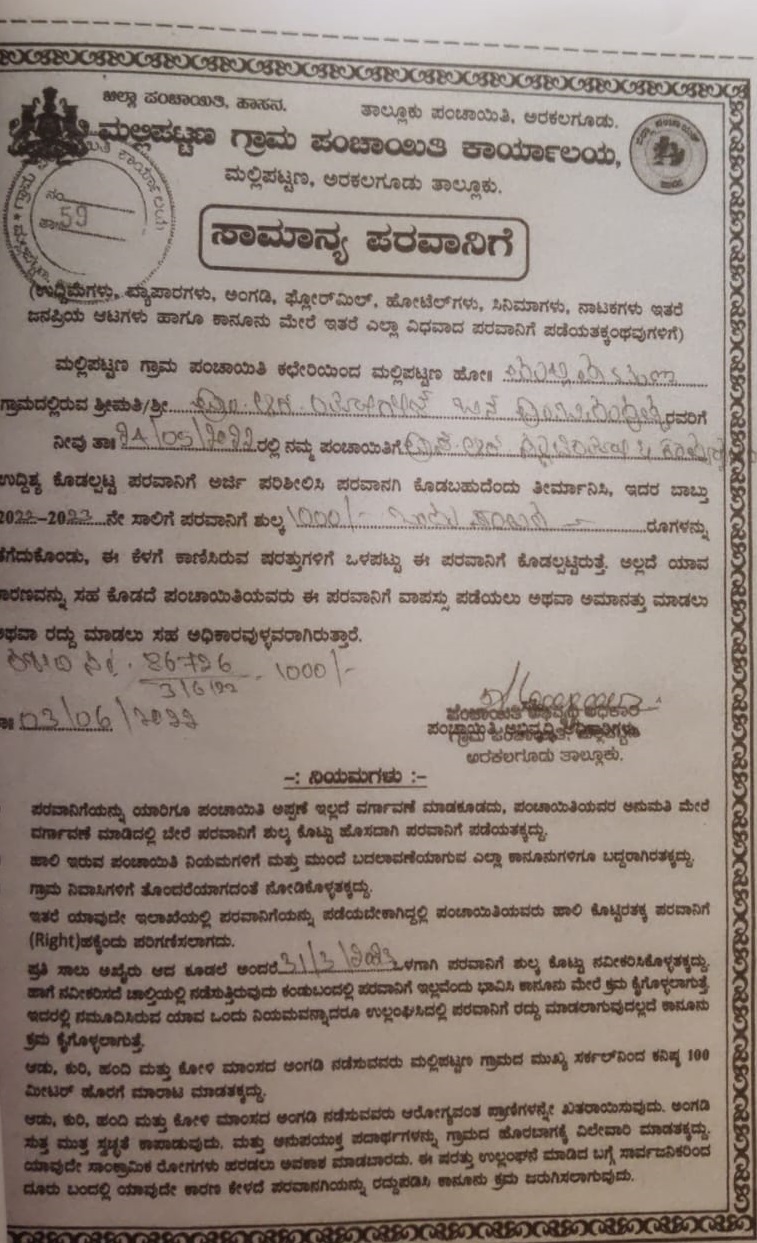 ಜಿಲ್ಲಾ ಪಂಚಾಯಿತಿ, ಹಾಸನ. ತಾಲ್ಲೂಕು ಪಂಚಾಯಿತಿ, ಅರಕಲಗೂಡು.
ಮಲ್ಲಿಪಟ್ಟಣ ಗ್ರಾಮ ಪಂಚಾಯಿತಿ ಕಾರ್ಯಾಲಯ,
ಮಲ್ಲಿಪಟ್ಟಣ, ಅರಕಲಗೂಡು ತಾಲ್ಲೂಕು.
59
ಸಾಮಾನ್ಯ ಪರವಾನಿಗೆ
(ಉದ್ದಿಮೆಗಳು, ವ್ಯಾಪಾರಗಳು, ಅಂಗಡಿ, ಫ್ಲೋರ್‌ಮಿಲ್, ಹೋಟೆಲ್‌ಗಳು, ಸಿನಿಮಾಗಳು, ನಾಟಕಗಳು ಇತರೆ
ಜನಪ್ರಿಯ ಆಟಗಳು ಹಾಗೂ ಕಾನೂನು ಮೇರೆ ಇತರೆ ಎಲ್ಲಾ ವಿಧವಾದ ಪರವಾನಿಗೆ ಪಡೆಯತಕ್ಕಂಥವುಗಳಿಗೆ)
ಮಲ್ಲಿಪಟ್ಟಣ ಗ್ರಾಮ ಪಂಚಾಯಿತಿ ಕಛೇರಿಯಿಂದ ಮಲ್ಲಿಪಟ್ಟಣ ಹೋ॥
ಗ್ರಾಮದಲ್ಲಿರುವ ಶ್ರೀಮತಿ/ಶ್ರೀ ರವರಿಗೆ
ನೀವು ತಾ॥ 24/05/2022 ರಲ್ಲಿ ನಮ್ಮ ಪಂಚಾಯಿತಿಗೆ
ಉದ್ದಿಶ್ಯ ಕೊಡಲ್ಪಟ್ಟ ಪರವಾನಿಗೆ ಅರ್ಜಿ ಪರಿಶೀಲಿಸಿ ಪರವಾನಗಿ ಕೊಡಬಹುದೆಂದು ತೀರ್ಮಾನಿಸಿ, ಇದರ ಬಾಬ್ತು
2022-2023 ನೇ ಸಾಲಿಗೆ ಪರವಾನಿಗೆ ಶುಲ್ಕ 1000/- ಒಂದು ಸಾವಿರ ರೂಗಳನ್ನು
ತೆಗೆದುಕೊಂಡು, ಈ ಕೆಳಗೆ ಕಾಣಿಸಿರುವ ಪರತ್ತುಗಳಿಗೆ ಒಳಪಟ್ಟು ಈ ಪರವಾನಿಗೆ ಕೊಡಲ್ಪಟ್ಟಿರುತ್ತೆ. ಅಲ್ಲದೆ ಯಾವ
ಕಾರಣವನ್ನು ಸಹ ಕೊಡದೆ ಪಂಚಾಯಿತಿಯವರು ಈ ಪರವಾನಿಗೆ ವಾಪಸ್ಸು ಪಡೆಯಲು ಅಥವಾ ಅಮಾನತ್ತು ಮಾಡಲು
ಅಥವಾ ರದ್ದು ಮಾಡಲು ಸಹ ಅಧಿಕಾರವುಳ್ಳವರಾಗಿರುತ್ತಾರೆ.
86726 1000/-
3/6/22
ತಾ॥ 03/06/2022
ಪಂಚಾಯ್ತಿ ಅಭಿವೃದ್ಧಿ ಅಧಿಕಾರಿಗಳು
ಅರಕಲಗೂಡು ತಾಲ್ಲೂಕು.
-: ನಿಯಮಗಳು :-
ಪರವಾನಿಗೆಯನ್ನು ಯಾರಿಗೂ ಪಂಚಾಯಿತಿ ಅಪ್ಪಣೆ ಇಲ್ಲದೆ ವರ್ಗಾವಣೆ ಮಾಡಕೂಡದು, ಪಂಚಾಯಿತಿಯವರ ಅನುಮತಿ ಮೇರೆ
ವರ್ಗಾವಣೆ ಮಾಡಿದಲ್ಲಿ ಬೇರೆ ಪರವಾನಿಗೆ ಶುಲ್ಕ ಕೊಟ್ಟು ಹೊಸದಾಗಿ ಪರವಾನಿಗೆ ಪಡೆಯತಕ್ಕದ್ದು.
ಹಾಲಿ ಇರುವ ಪಂಚಾಯಿತಿ ನಿಯಮಗಳಿಗೆ ಮತ್ತು ಮುಂದೆ ಬದಲಾವಣೆಯಾಗುವ ಎಲ್ಲಾ ಕಾನೂನುಗಳಿಗೂ ಬದ್ದರಾಗಿರತಕ್ಕದ್ದು.
ಗ್ರಾಮ ನಿವಾಸಿಗಳಿಗೆ ತೊಂದರೆಯಾಗದಂತೆ ನೋಡಿಕೊಳ್ಳತಕ್ಕದ್ದು.
ಇತರೆ ಯಾವುದೇ ಇಲಾಖೆಯಲ್ಲಿ ಪರವಾನಿಗೆಯನ್ನು ಪಡೆಯಬೇಕಾಗಿದ್ದಲ್ಲಿ ಪಂಚಾಯಿತಿಯವರು ಹಾಲಿ ಕೊಟ್ಟಿರತಕ್ಕ ಪರವಾನಿಗೆ
(Right)ಹಕ್ಕೆಂದು ಪರಿಗಣಿಸಲಾಗದು.
ಪ್ರತಿ ಸಾಲು ಅಖೈರು ಆದ ಕೂಡಲೆ ಅಂದರೆ 31/3/2023 ಒಳಗಾಗಿ ಪರವಾನಿಗೆ ಶುಲ್ಕ ಕೊಟ್ಟು ನವೀಕರಿಸಿಕೊಳ್ಳತಕ್ಕದ್ದು.
ಹಾಗೆ ನವೀಕರಿಸದೆ ಚಾಲ್ತಿಯಲ್ಲಿ ನಡೆಸುತ್ತಿರುವುದು ಕಂಡುಬಂದಲ್ಲಿ ಪರವಾನಿಗೆ ಇಲ್ಲವೆಂದು ಭಾವಿಸಿ ಕಾನೂನು ಮೇರೆ ಕ್ರಮ ಕೈಗೊಳ್ಳಲಾಗುತ್ತೆ
ಇದರಲ್ಲಿ ನಮೂದಿಸಿರುವ ಯಾವ ಒಂದು ನಿಯಮವನ್ನಾದರೂ ಉಲ್ಲಂಘಿಸಿದಲ್ಲಿ ಪರವಾನಿಗೆ ರದ್ದು ಮಾಡಲಾಗುವುದಲ್ಲದೆ ಕಾನೂನು
ಕ್ರಮ ಕೈಗೊಳ್ಳಲಾಗುತ್ತೆ.
ಆಡು, ಕುರಿ, ಹಂದಿ ಮತ್ತು ಕೋಳಿ ಮಾಂಸದ ಅಂಗಡಿ ನಡೆಸುವವರು ಮಲ್ಲಿಪಟ್ಟಣ ಗ್ರಾಮದ ಮುಖ್ಯ ಸರ್ಕಲ್‌ನಿಂದ ಕನಿಷ್ಠ 100
ಮೀಟರ್ ಹೊರಗೆ ಮಾರಾಟ ಮಾಡತಕ್ಕದ್ದು.
ಆಡು, ಕುರಿ, ಹಂದಿ ಮತ್ತು ಕೋಳಿ ಮಾಂಸದ ಅಂಗಡಿ ನಡೆಸುವವರು ಆರೋಗ್ಯವಂತ ಪ್ರಾಣಿಗಳನ್ನೇ ಖತರಾಯಿಸುವುದು. ಅಂಗಡಿ
ಸುತ್ತ ಮುತ್ತ ಸ್ವಚ್ಛತೆ ಕಾಪಾಡುವುದು. ಮತ್ತು ಅನುಪಯುಕ್ತ ಪದಾರ್ಥಗಳನ್ನು ಗ್ರಾಮದ ಹೊರಬಾಗಕ್ಕೆ ವಿಲೇವಾರಿ ಮಾಡತಕ್ಕದ್ದು.
ಯಾವುದೇ ಸಾಂಕ್ರಾಮಿಕ ರೋಗಗಳು ಹರಡಲು ಅವಕಾಶ ಮಾಡಬಾರದು. ಈ ಪರತ್ತು ಉಲ್ಲಂಘನೆ ಮಾಡಿದ ಬಗ್ಗೆ ಸಾರ್ವಜನಿಕರಿಂದ
ದೂರು ಬಂದಲ್ಲಿ ಯಾವುದೇ ಕಾರಣ ಕೇಳದೆ ಪರವಾನಗಿಯನ್ನು ರದ್ದುಪಡಿಸಿ ಕಾನೂನು ಕ್ರಮ ಜರುಗಿಸಲಾಗುವುದು.